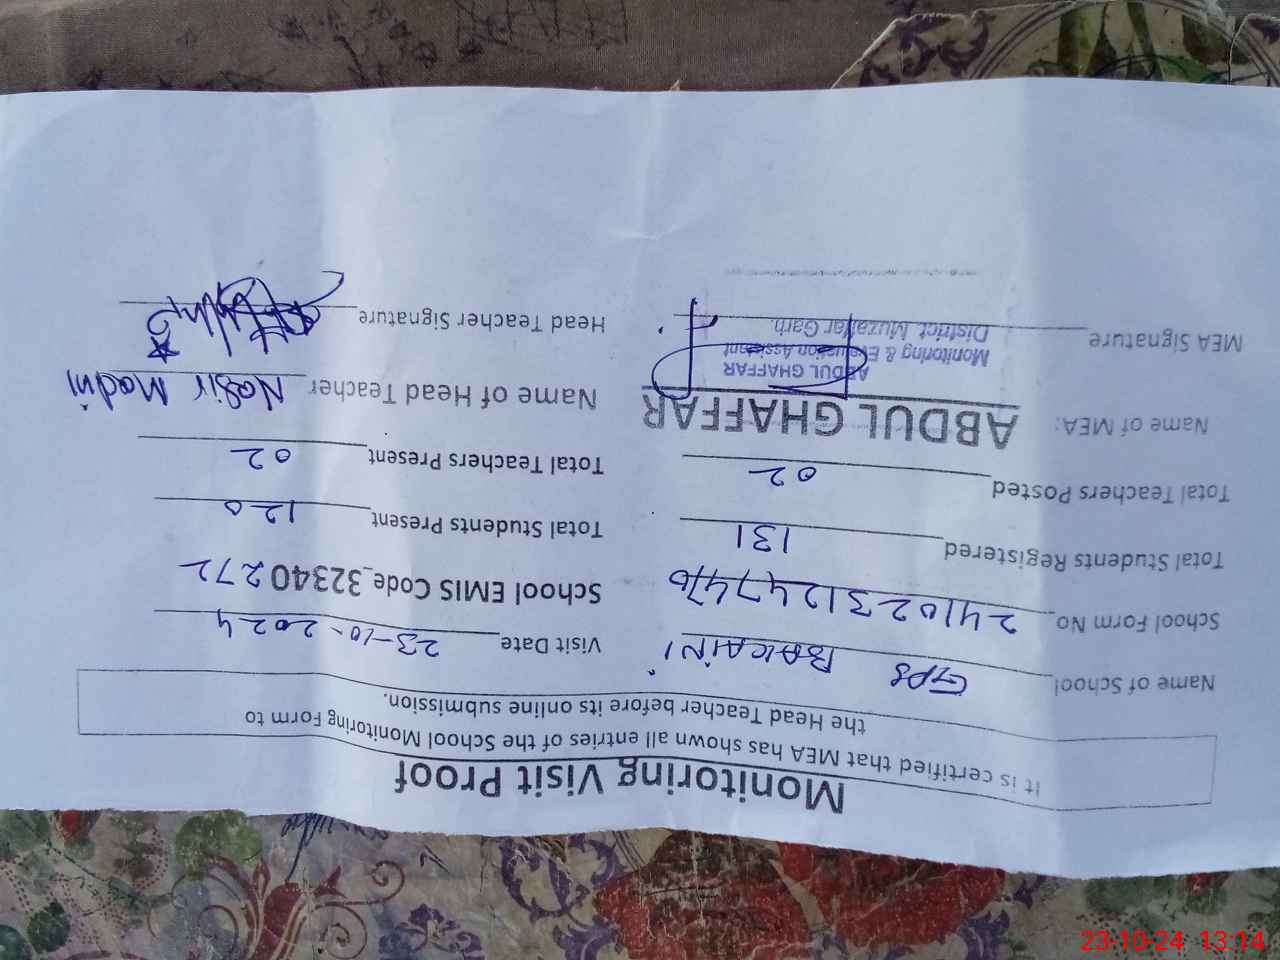 Monitoring Visit Proof
It is certified that MEA has shown all entries of the School Monitoring Form to
the Head Teacher before its online submission.
Name of School GPS BAKAINI Visit Date 23-10-2024
School Form No. 2410231247470 School EMIS Code_32340272
Total Students Registered 131 Total Students Present 120
Total Teachers Posted 02 Total Teachers Present 02
Name of MEA: ABDUL GHAFFAR Name of Head Teacher Nasir Madni
ABDUL GHAFFAR
Monitoring & Evaluation Assistant
District Muzaffar Garh.
MEA Signature Head Teacher Signature
23-10-24 13:14